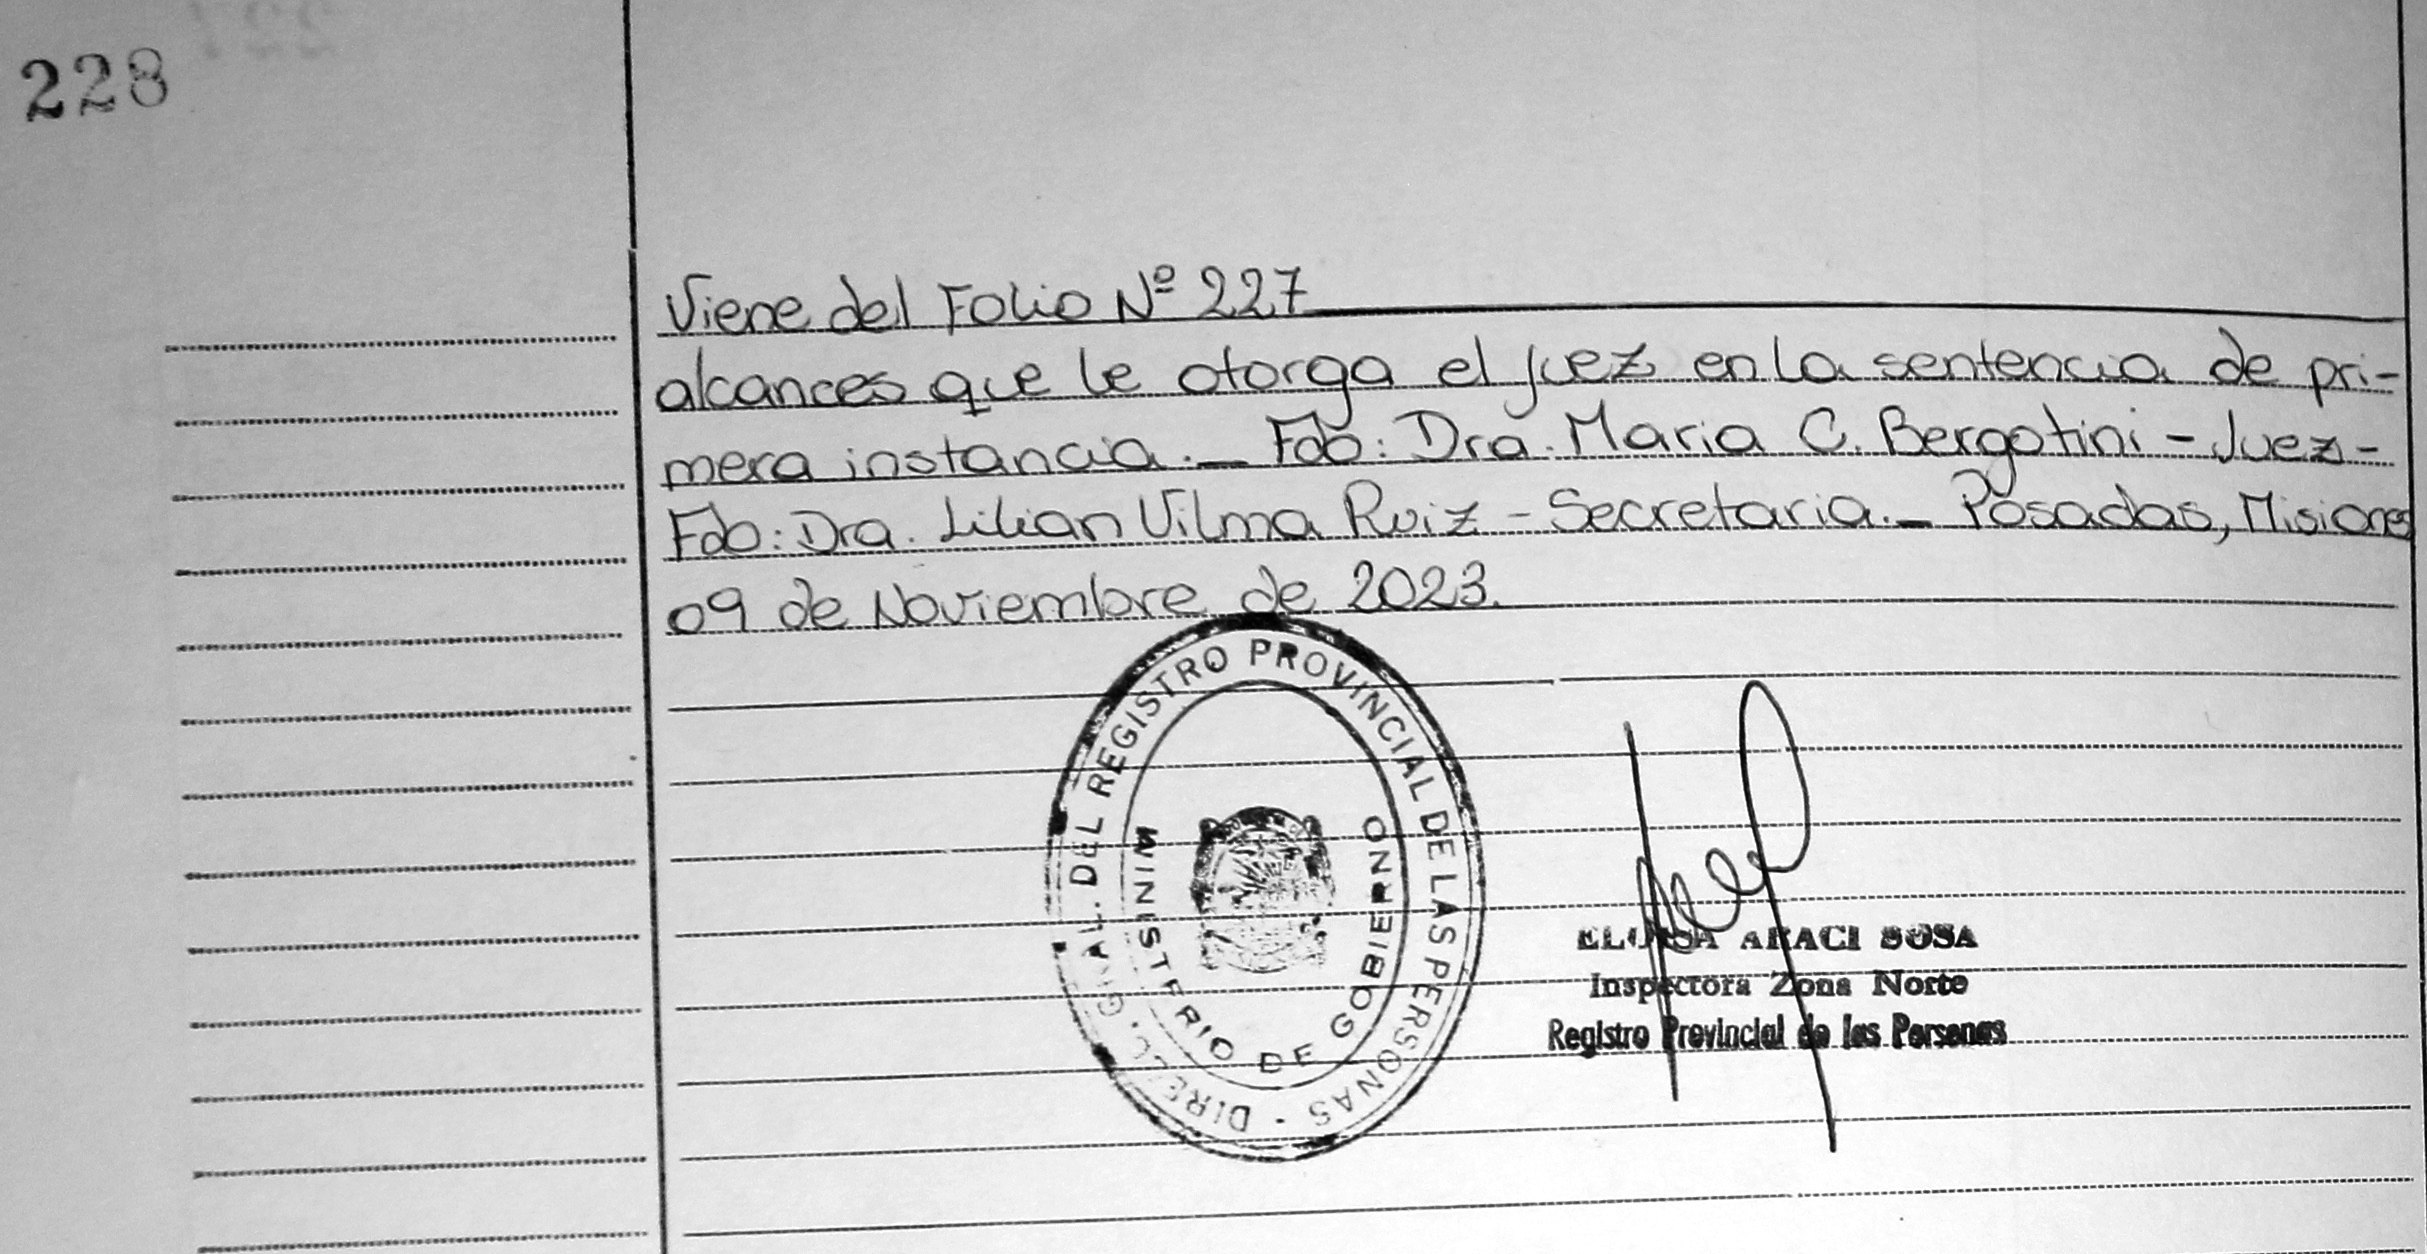 228
Viene del Folio Nº 227
alcances que le otorga el juez en la sentencia de pri-
mera instancia._ Fdo: Dra. Maria C. Bergotini - Juez-
Fdo: Dra. Lilian Vilma Ruiz - Secretaria._ Posadas, Misiones
09 de Noviembre de 2023.
DIREC. GRAL. DEL REGISTRO PROVINCIAL DE LAS PERSONAS
MINISTERIO DE GOBIERNO
ELOISA ARACI SOSA
Inspectora Zona Norte
Registro Provincial de las Personas